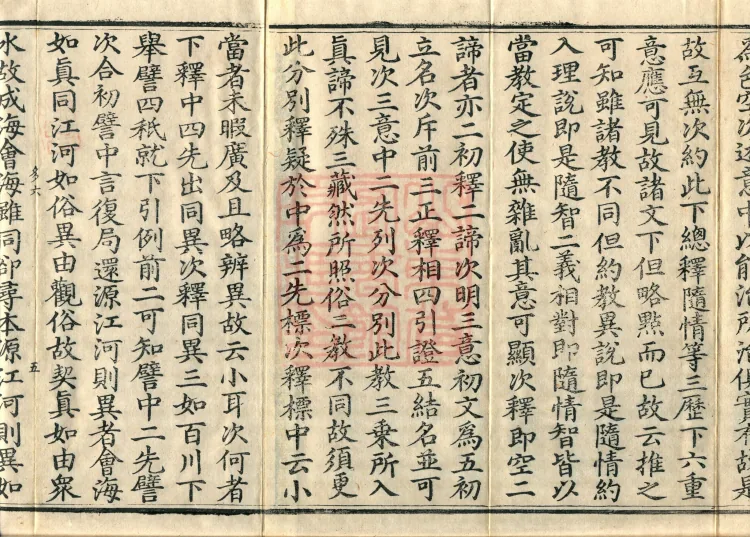 故互無次約此下總釋隨情等三歷下六重
意應可見故諸文下但略點而已故云推之
可知雖諸教不同但約教異說即是隨情約
入理說即是隨智二義相對即隨情智皆以
當教定之使無雜亂其意可顯次釋即空二
諦者亦二初釋二諦次明三意初文為五初
立名次斥前三正釋相四引證五結名並可
見次三意中二先列次分別此教三乘所入
真諦不殊三藏然所照俗二教不同故須更
此分別釋疑於中為二先標次釋標中云小
當者未暇廣及且略辨異故云小耳次何者
下釋中四先出同異次釋同異三如百川下
舉譬四秖就下引例前二可知譬中二先譬
次合初譬中言復局還源江河則異者會海
如真同江河如俗異由觀俗故契真如由眾
水故成海會海雖同卻尋本源江河則異如
五